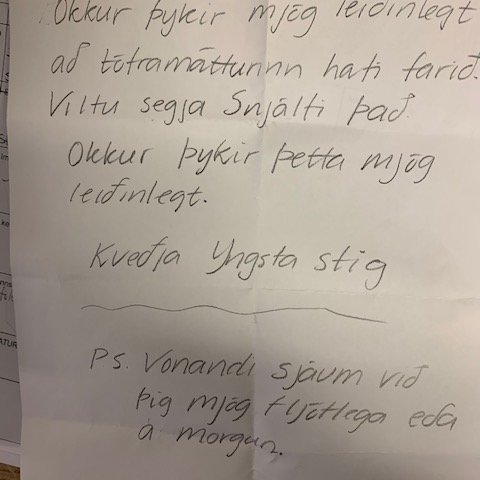 Okkur þykir mjög leiðinlegt
að töframátturinn hafi farið.
Viltu segja Snjálfi það.
Okkur þykir þetta mjög
leiðinlegt.
Kveðja Yngsta stig
Ps. Vonandi sjáum við
þig mjög fljótlega eða
á morgun.